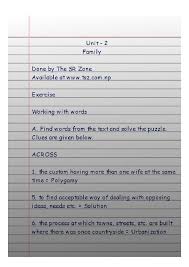 Unit - 2
Family
Done by The SR Zone
Available at www.tsz.com.np
Exercise
Working with words
A. Find words from the text and solve the puzzle.
Clues are given below.
ACROSS
1. the custom having more than one wife at the same
time = Polygamy
5. to find acceptable way of dealing with opposing
ideas, needs etc. = Solution
6. the process at which towns, streets, etc. are built
where there was once countryside = Urbanization